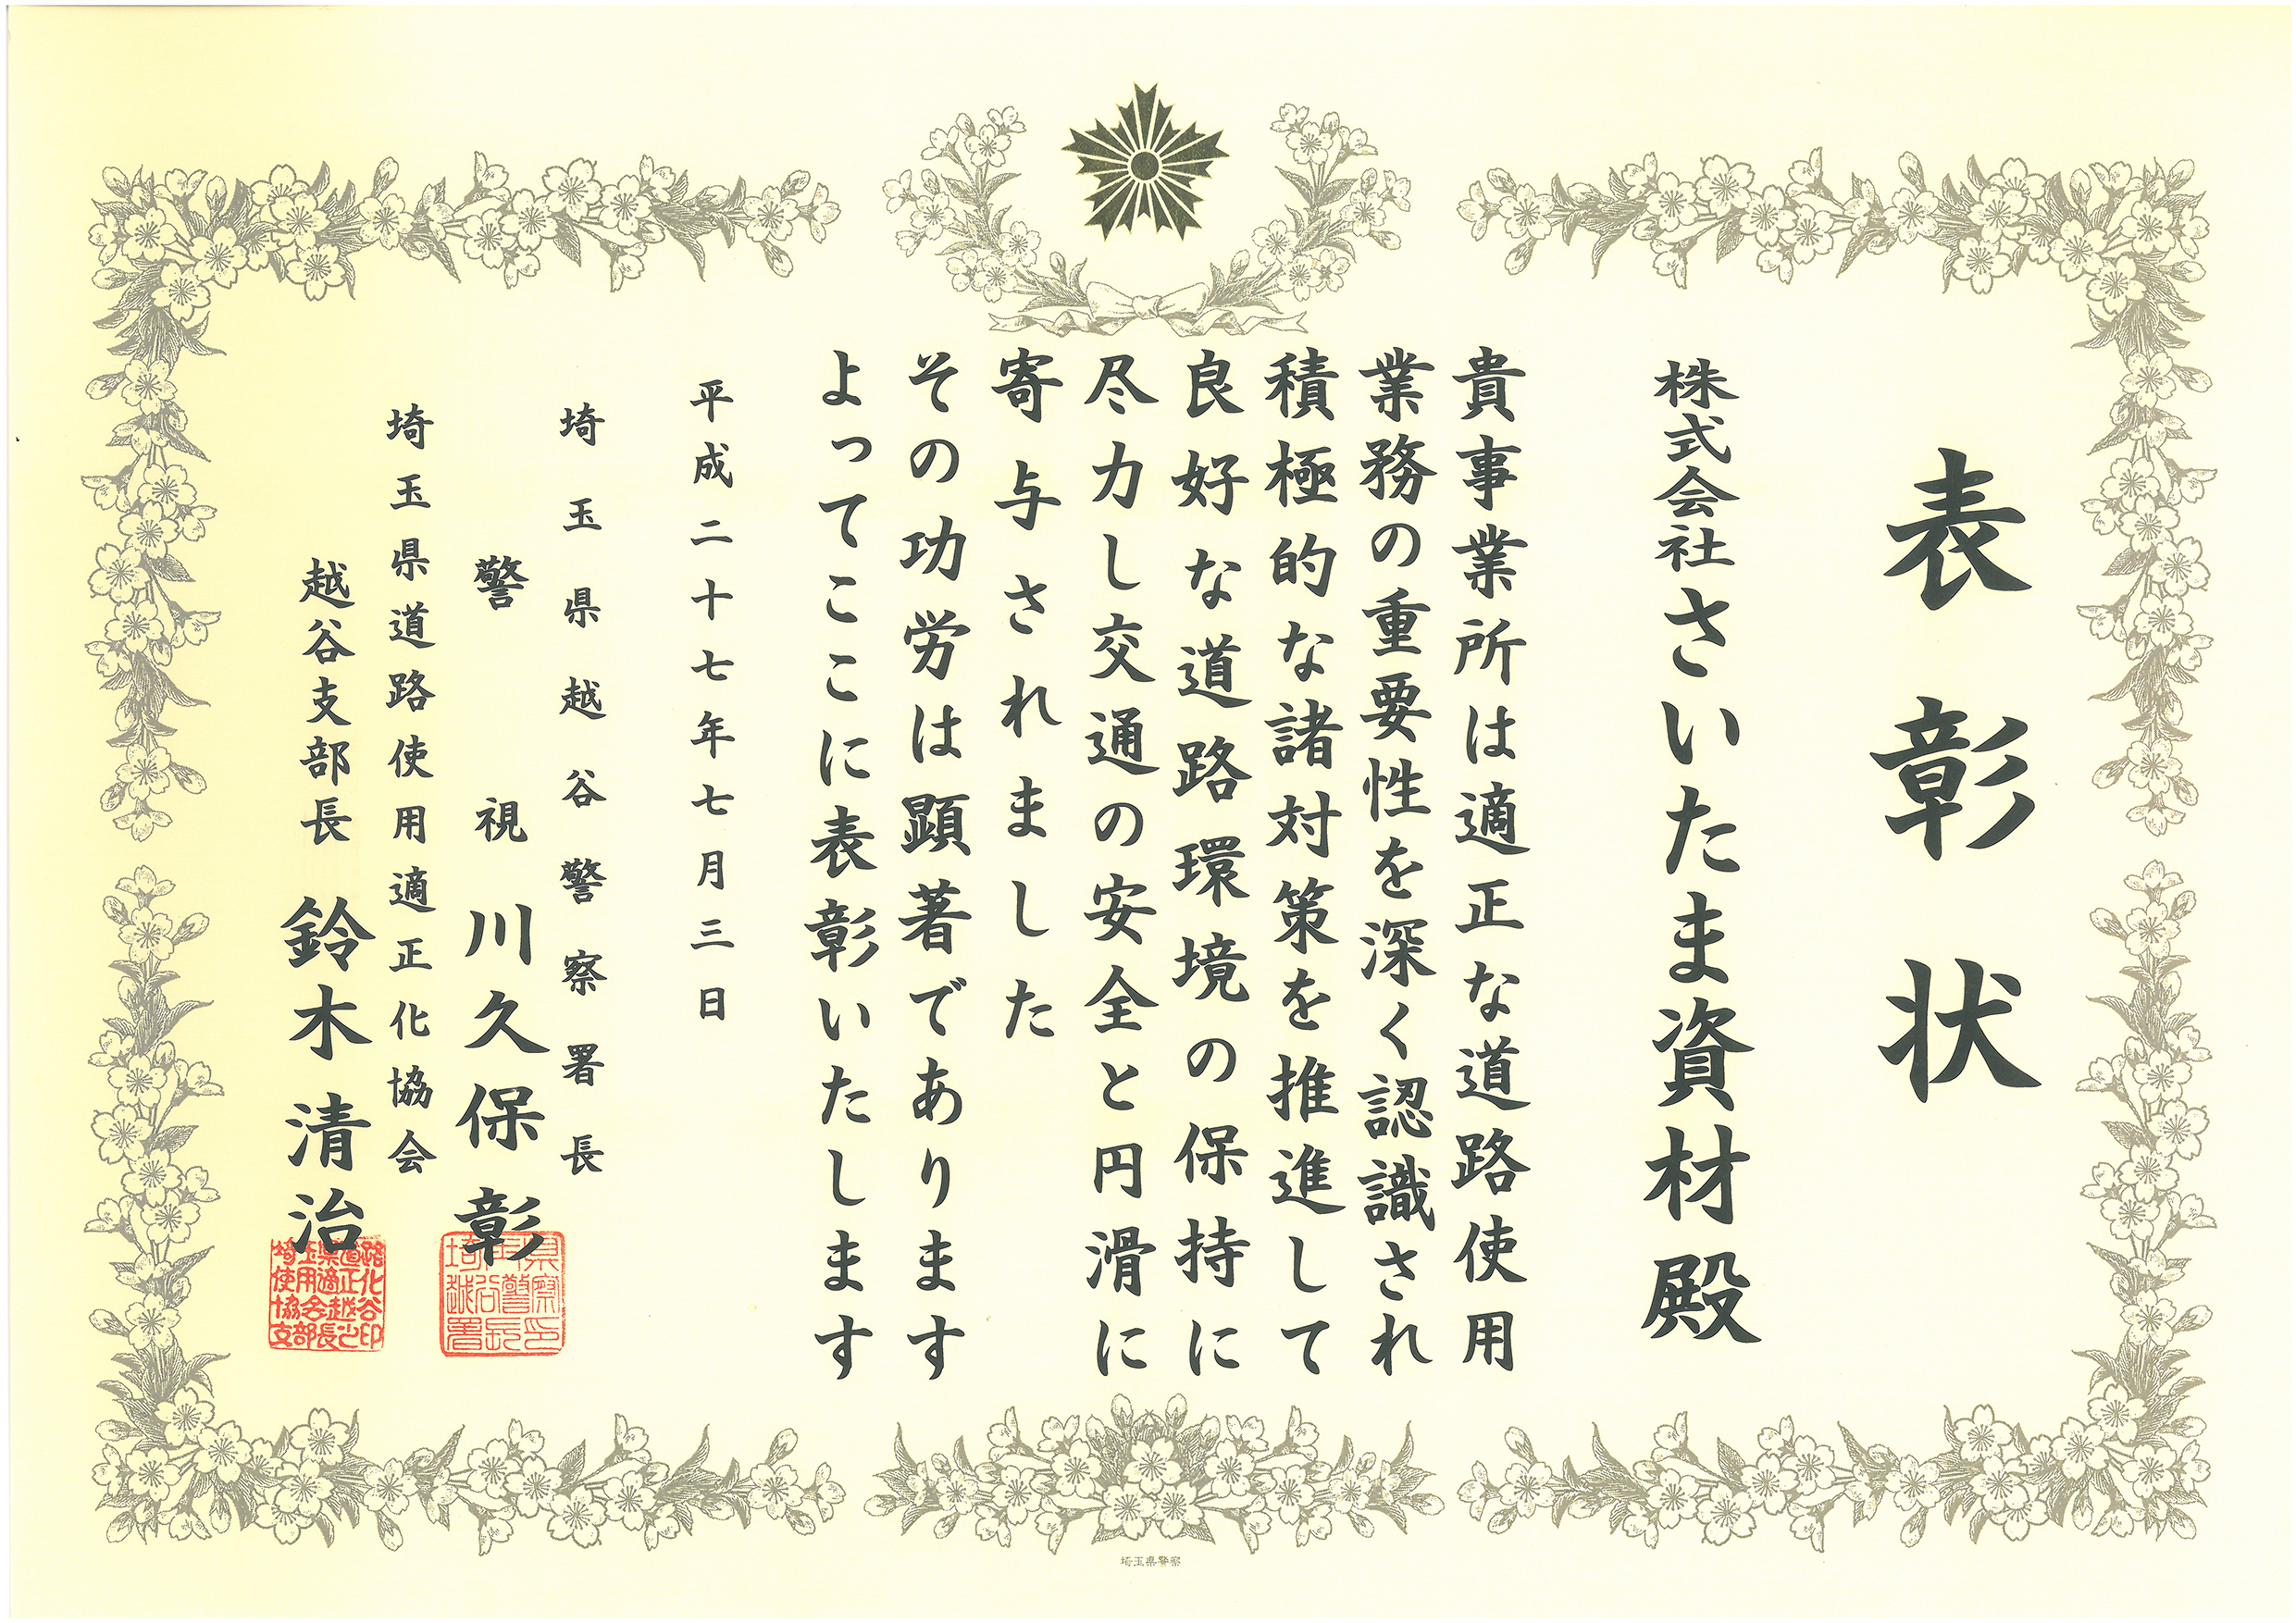 表彰状
株式会社さいたま資材殿
貴事業所は適正な道路使用
業務の重要性を深く認識され
積極的な諸対策を推進して
良好な道路環境の保持に
尽力し交通の安全と円滑に
寄与されました
その功労は顕著であります
よってここに表彰いたします
平成二十七年七月三日
埼玉県越谷警察署長
警視川久保彰
埼玉県道路使用適正化協会
越谷支部長鈴木清治
埼玉県道路
使用適正化
協会越谷
支部長之印
埼玉県警察